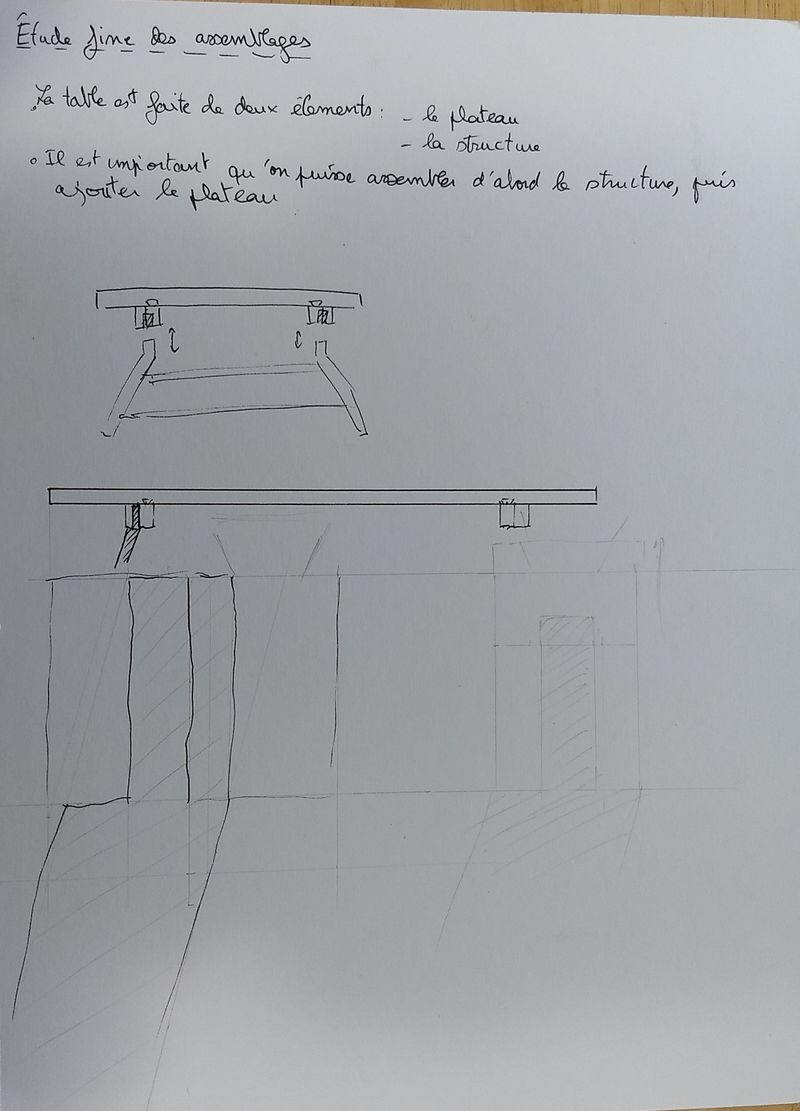 Étude fine des assemblages
La table est faite de deux éléments : - le plateau
- la structure
• Il est important qu'on puisse assembler d'abord la structure, puis
ajouter le plateau